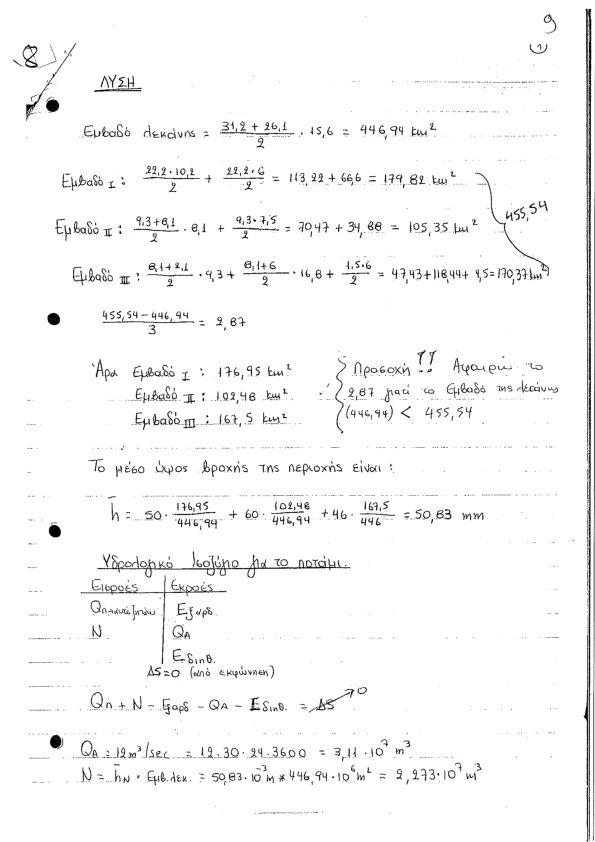 9
(1)
8
ΛΥΣΗ
Εμβαδό λεκάνης = (31,2 + 26,1)/2 · 15,6 = 446,94 km²
Εμβαδό I : (22,2 · 10,2)/2 + (22,2 · 6)/2 = 113,22 + 66,6 = 179,82 km²
Εμβαδό II : (9,3 + 8,1)/2 · 8,1 + (9,3 · 7,5)/2 = 70,47 + 34,88 = 105,35 km²
455,54
Εμβαδό III : (8,1 + 2,1)/2 · 9,3 + (8,1 + 6)/2 · 16,8 + (1,5 · 6)/2 = 47,43 + 118,44 + 4,5 = 170,37 km²
(455,54 – 446,94)/3 = 2,87
Άρα Εμβαδό I : 176,95 km²
Εμβαδό II : 102,48 km²
Εμβαδό III : 167,5 km²
Προσοχή !! Αφαιρώ το
2,87 γιατί το Εμβαδό της λεκάνης
(446,94) < 455,54
Το μέσο ύψος βροχής της περιοχής είναι :
h̄ = 50 · 176,95/446,94 + 60 · 102,48/446,94 + 46 · 167,5/446 = 50,83 mm
Υδρολογικό Ισοζύγιο για το ποτάμι.
Εισροές | Εκροές
N | QA
Εδιηθ.
ΔS = 0 (από εκφώνηση)
Qπ + N – Εξαρδ – QA – Εδιηθ. = ΔS → 0
QA = 12 m³/sec = 12 · 30 · 24 · 3600 = 3,11 · 10⁷ m³
N = h̄N · Εμβ. λεκ. = 50,83 · 10⁻³ m * 446,94 · 10⁶ m² = 2,273 · 10⁷ m³